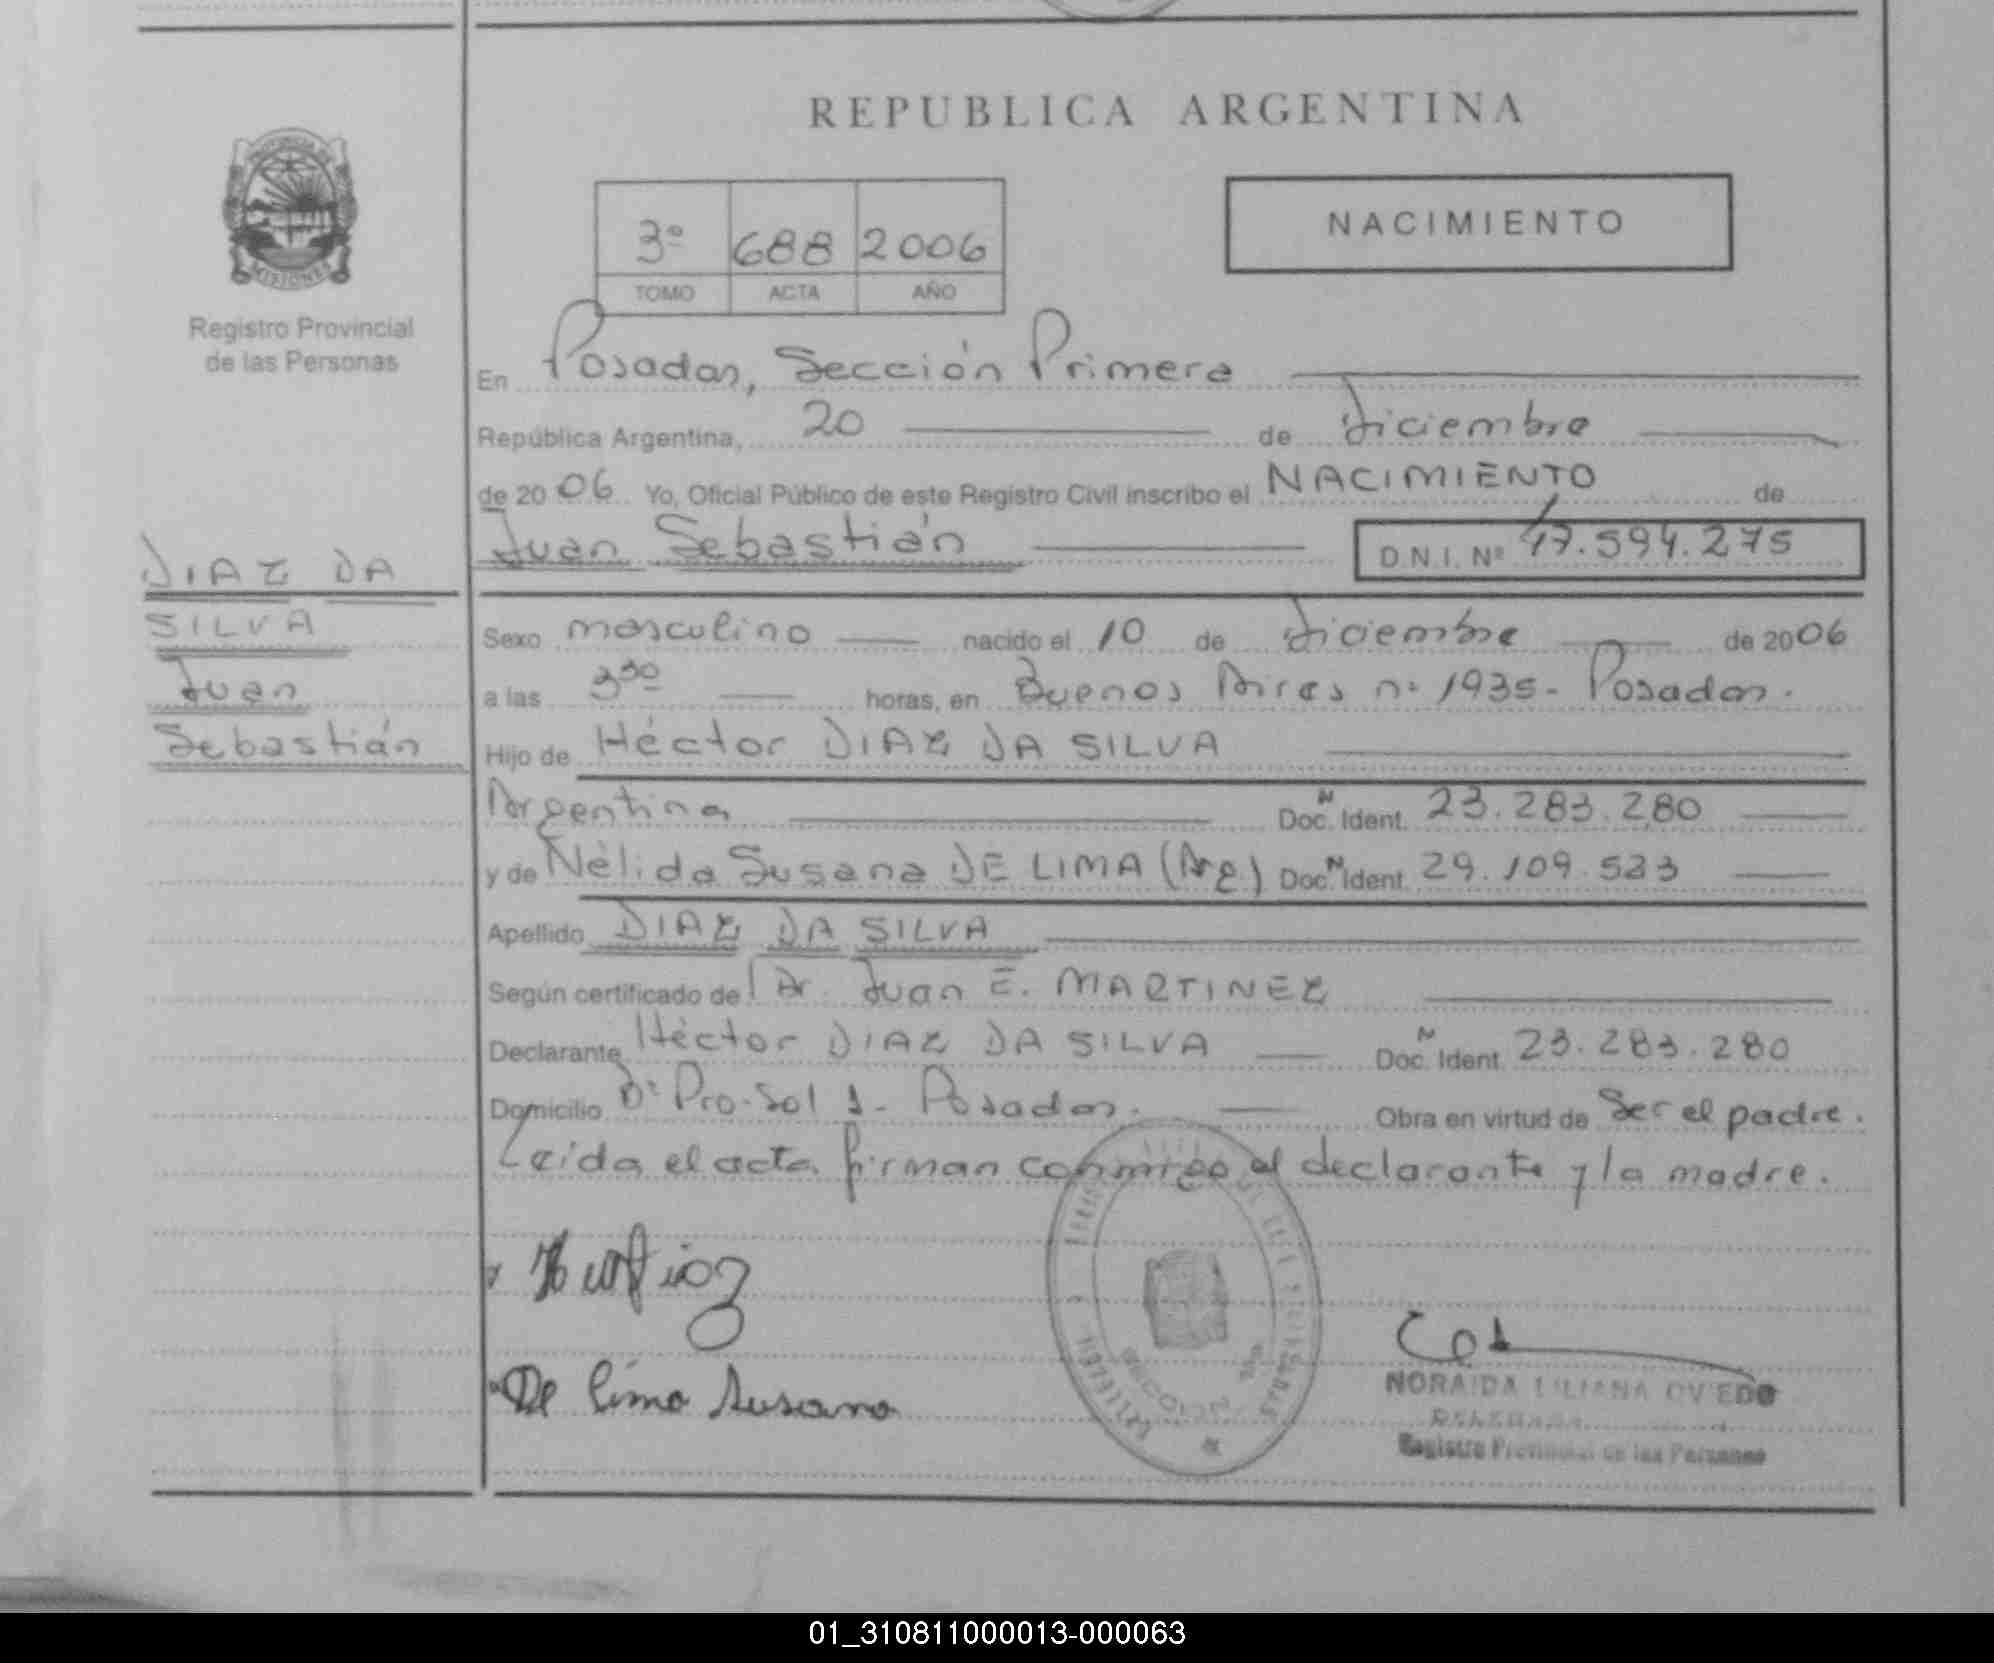 REPUBLICA ARGENTINA
PROVINCIA DE
MISIONES
Registro Provincial
de las Personas
3º 688 2006
TOMO ACTA AÑO
NACIMIENTO
En Posadas, Sección Primera
República Argentina, 20 de diciembre
de 2006 Yo, Oficial Público de este Registro Civil inscribo el NACIMIENTO de
Juan Sebastián D.N.I. Nº 47.594.275
DIAZ DA
SILVA
Juan
Sebastián
Sexo masculino nacido el 10 de diciembre de 2006
a las 3 30 horas, en Buenos Aires nº 1935- Posadas.
Hijo de Héctor DIAZ DA SILVA
Argentina Doc. N Ident. 23.283.280
y de Nélida Susana DE LIMA (Arg.) Doc. N Ident. 29.109.533
Apellido DIAZ DA SILVA
Según certificado de Dr. Juan E. MARTINEZ
Declarante Héctor DIAZ DA SILVA Doc. N Ident. 23.283.280
Domicilio Bº Pro-Sol 1- Posadas. Obra en virtud de Ser el padre.
Leída el acta firman conmigo el declarante y la madre.
De lima Susana
SECCION
NORAIDA LILIANA OVIEDO
DELEGADA
Registro Provincial de las Personas
01_310811000013-000063